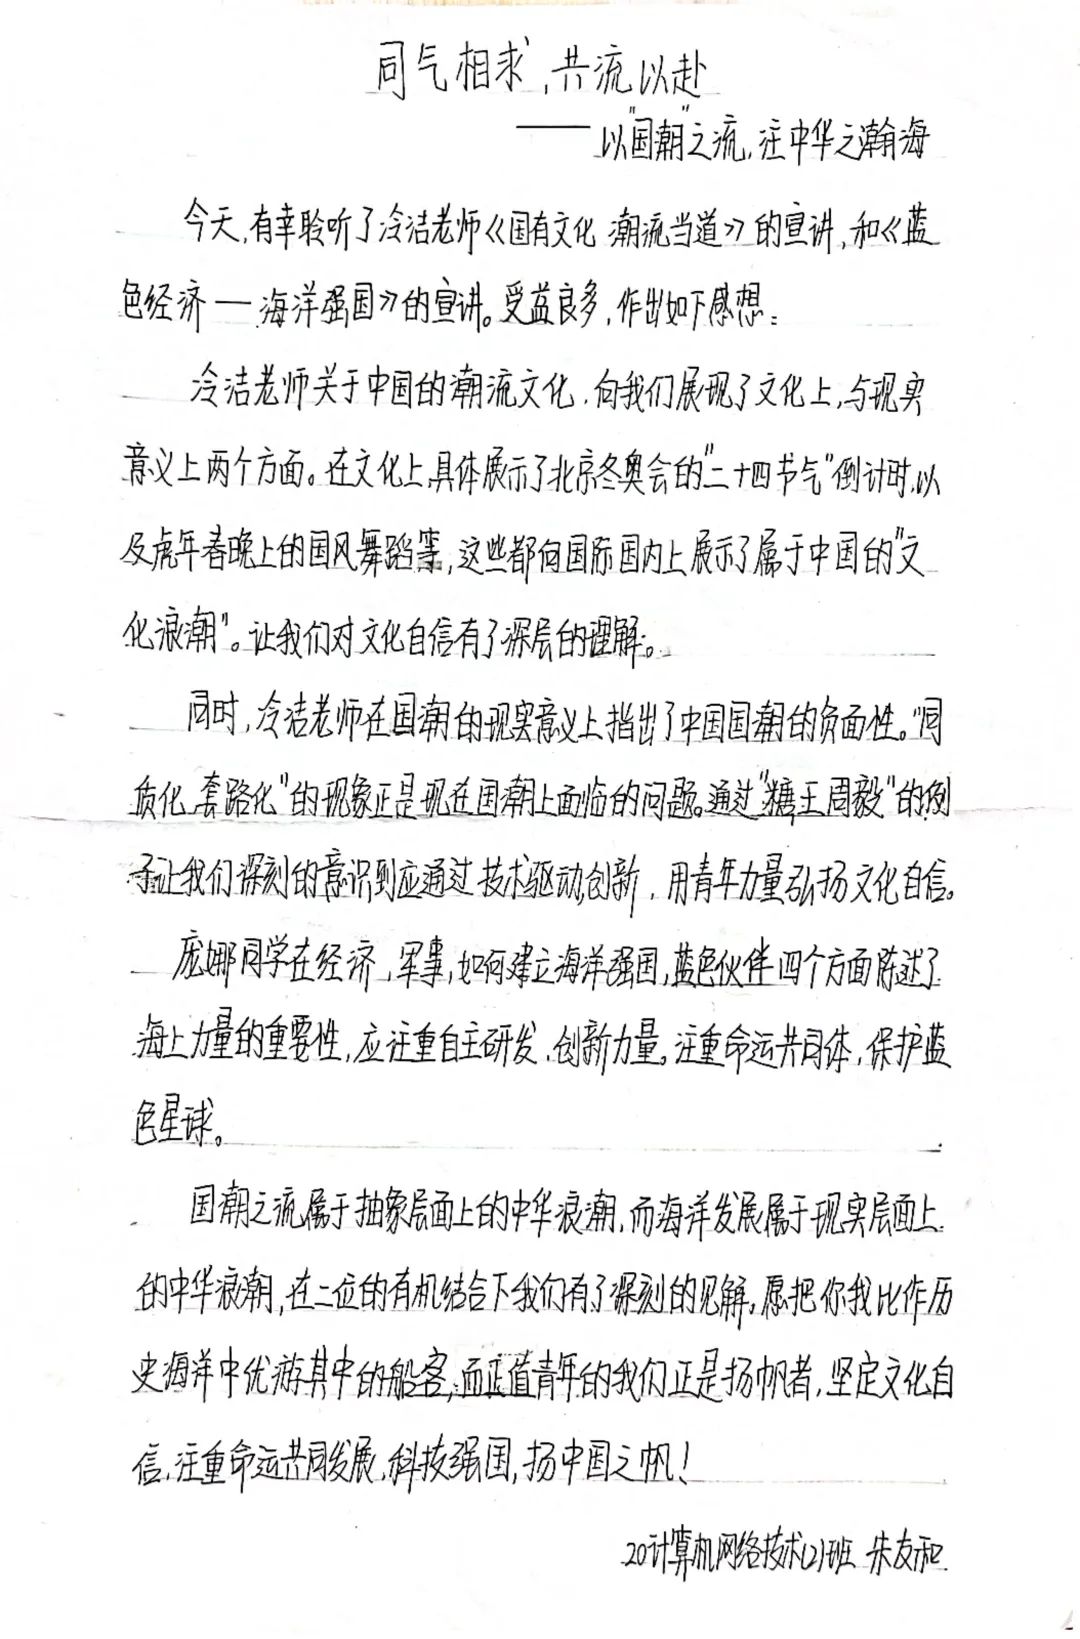 同气相求，共流以赴
——以"国潮"之流，注中华之瀚海
今天，有幸聆听了冷洁老师《国有文化 潮流当道》的宣讲，和《蓝
色经济——海洋强国》的宣讲。受益良多，作出如下感想：
冷洁老师关于中国的潮流文化，向我们展现了文化上，与现实
意义上两个方面。在文化上，具体展示了北京冬奥会的"二十四节气"倒计时，以
及虎年春晚上的国风舞蹈等，这些都向国际国内上展示了属于中国的"文
化浪潮"。让我们对文化自信有了深层的理解。
同时，冷洁老师在国潮的现实意义上指出了中国国潮的负面性。"同
质化，套路化"的现象正是现在国潮上面临的问题。通过"糖王周毅"的例
子让我们深刻的意识到应通过技术驱动创新，用青年力量弘扬文化自信。
庞娜同学在经济，军事，如何建立海洋强国，蓝色伙伴四个方面陈述了
海上力量的重要性，应注重自主研发，创新力量。注重命运共同体，保护蓝
色星球。
国潮之流属于抽象层面上的中华浪潮，而海洋发展属于现实层面上
的中华浪潮，在二位的有机结合下我们有了深刻的见解。愿把你我比作历
史海洋中优游其中的船客，而正值青年的我们正是扬帆者，坚定文化自
信，注重命运共同发展，科技强国，扬中国之帆！
20计算机网络技术(2)班 朱友和